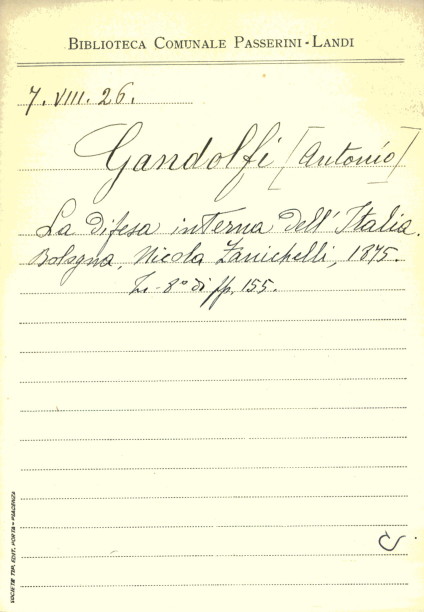 BIBLIOTECA COMUNALE PASSERINI-LANDI
7. VIII. 26.
Gandolfi [Antonio]
La difesa interna dell'Italia.
Bologna, Nicola Zanichelli, 1875.
in-8° di pp. 155.
SOCIETÀ TIP. EDIT. PORTA - PIACENZA